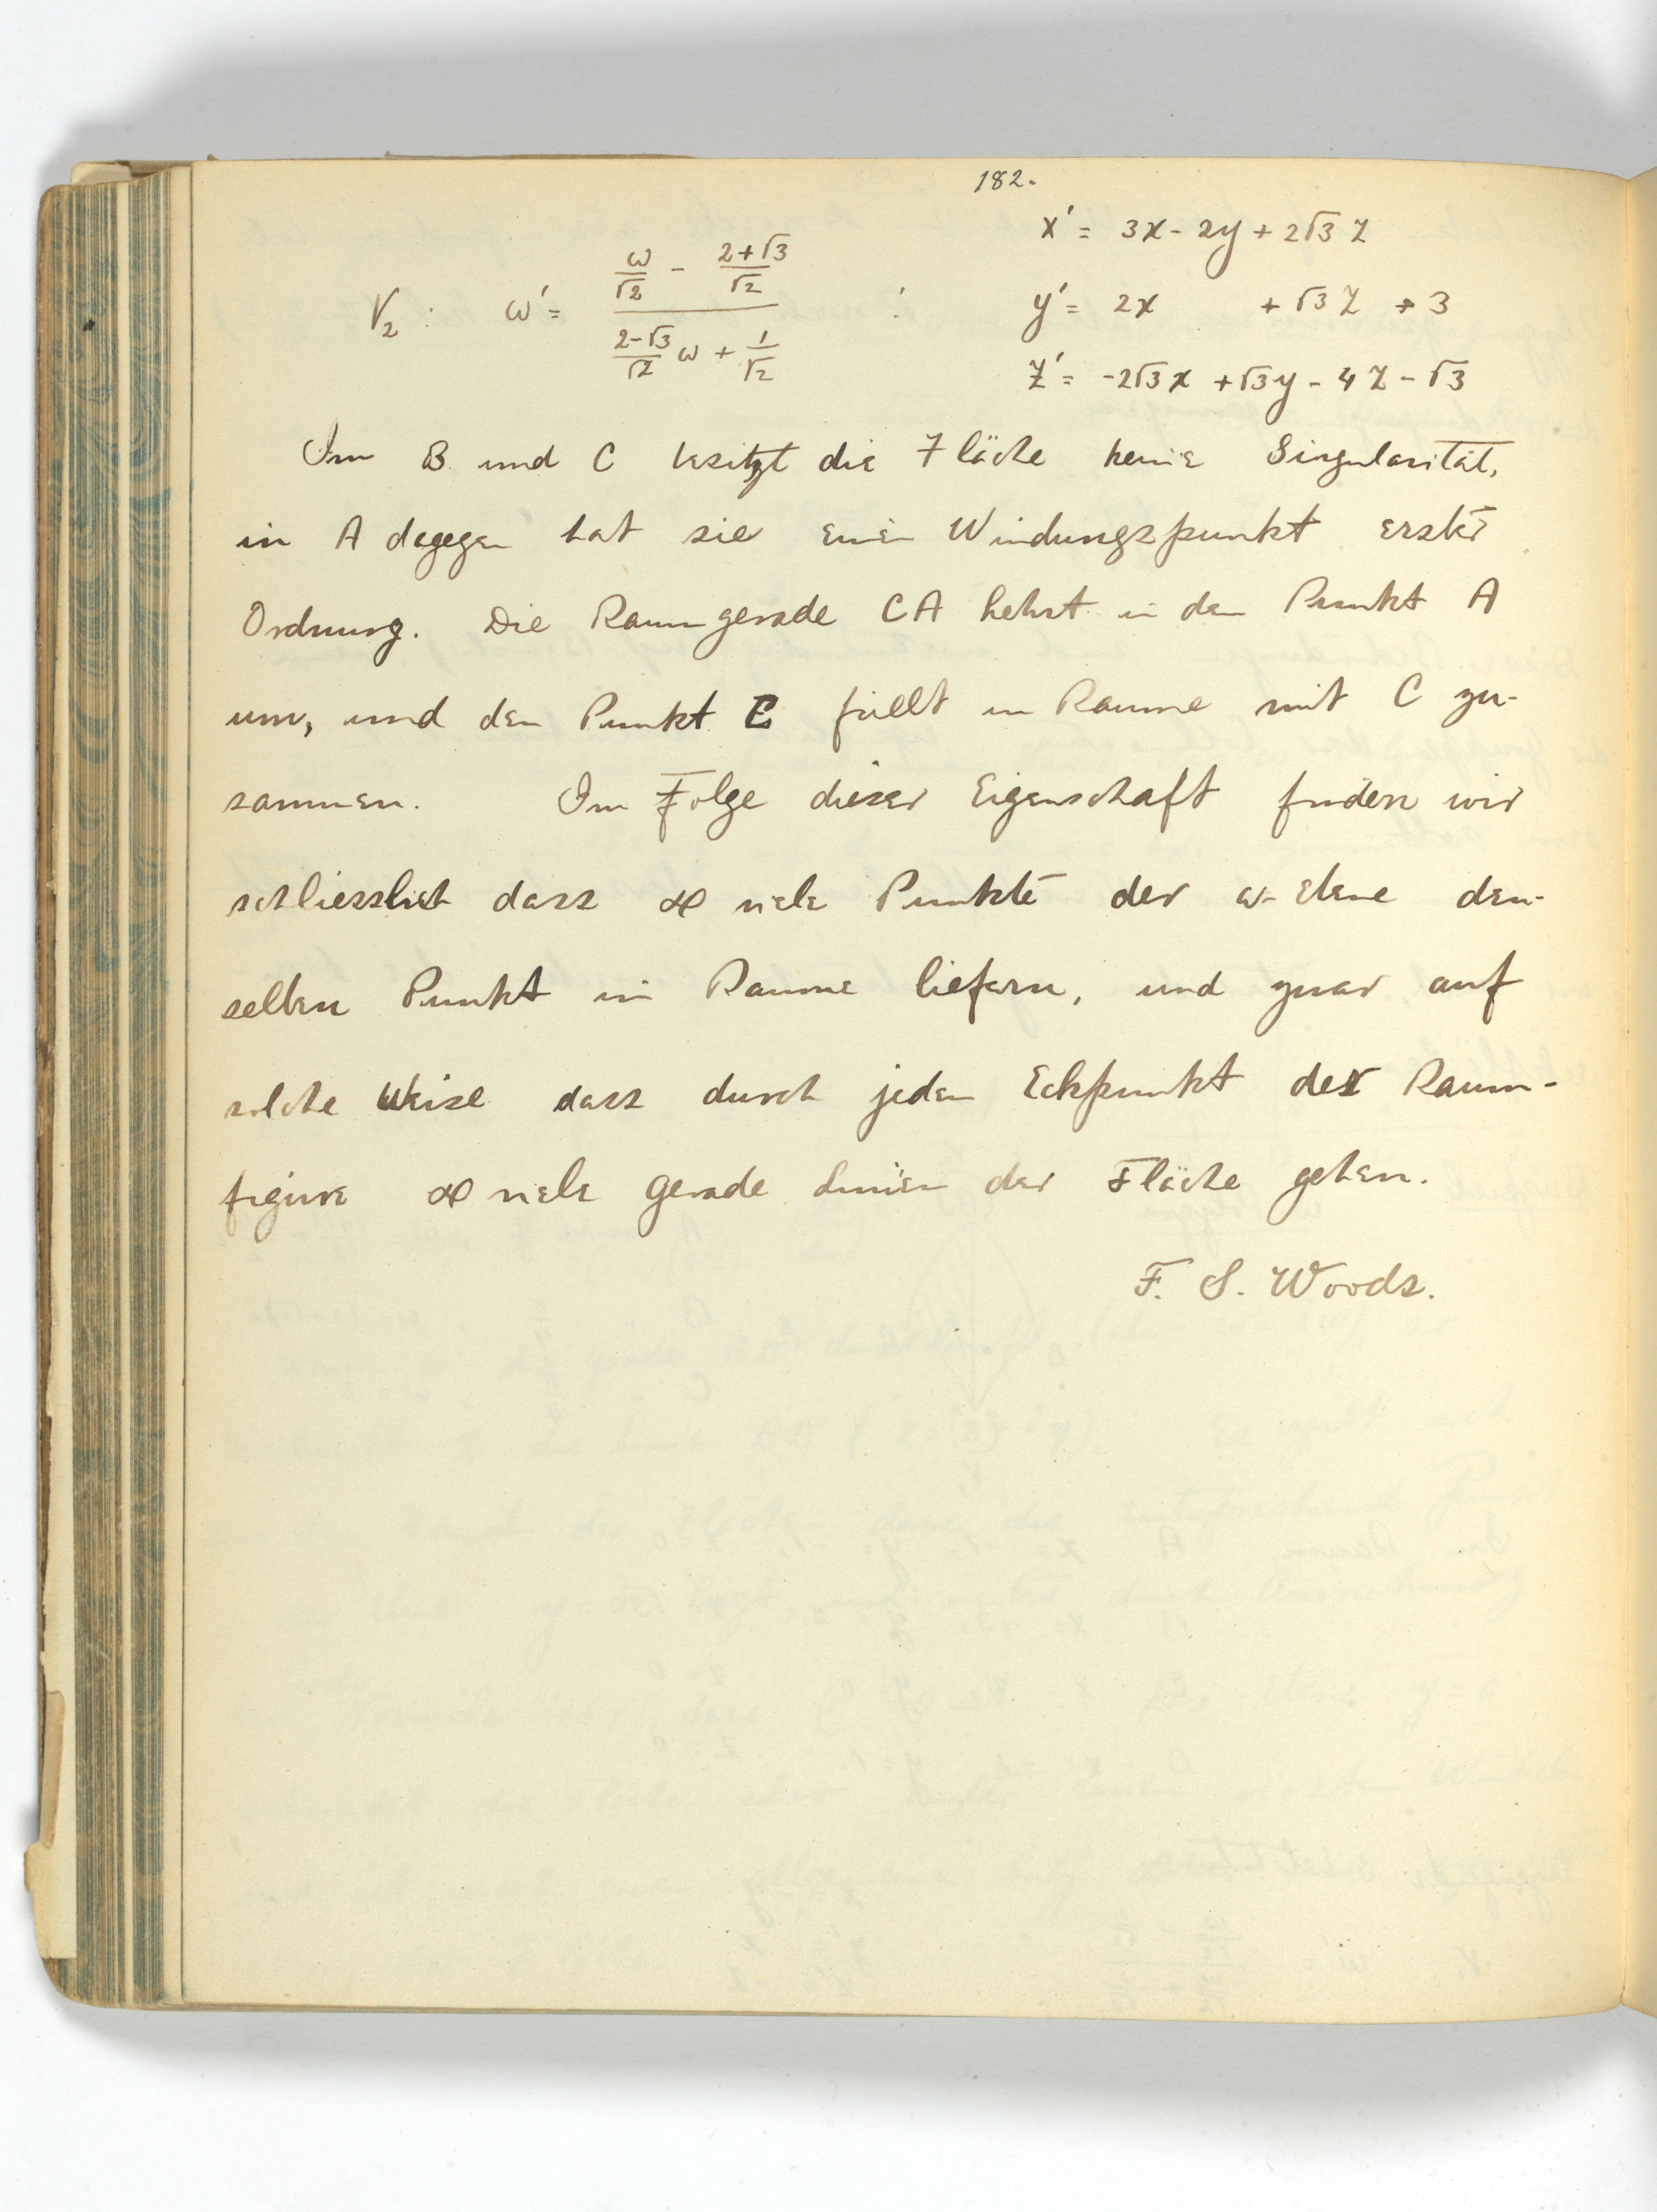 182.
x' = 3x - 2y + 2√3 z
V₂ : ω' = (ω/√2 - (2+√3)/√2) / ((2-√3)/√2 ω + 1/√2) : y' = 2x + √3 z + 3
z' = -2√3 x + √3 y - 4 z - √3
Im B und C besitzt die Fläche keine Singularität,
in A dagegen hat sie einen Windungspunkt erster
Ordnung. Die Raumgerade CA kehrt in den Punkt A
um, und den Punkt E fällt im Raume mit C zu-
sammen. Im Folge dieser Eigenschaft finden wir
schliesslich dass ∞ viele Punkte der ω-Ebene den-
selben Punkt im Raume liefern, und zwar auf
solche Weise dass durch jeden Eckpunkt der Raum-
figure ∞ viele gerade Linien der Fläche gehen.
F. S. Woods.